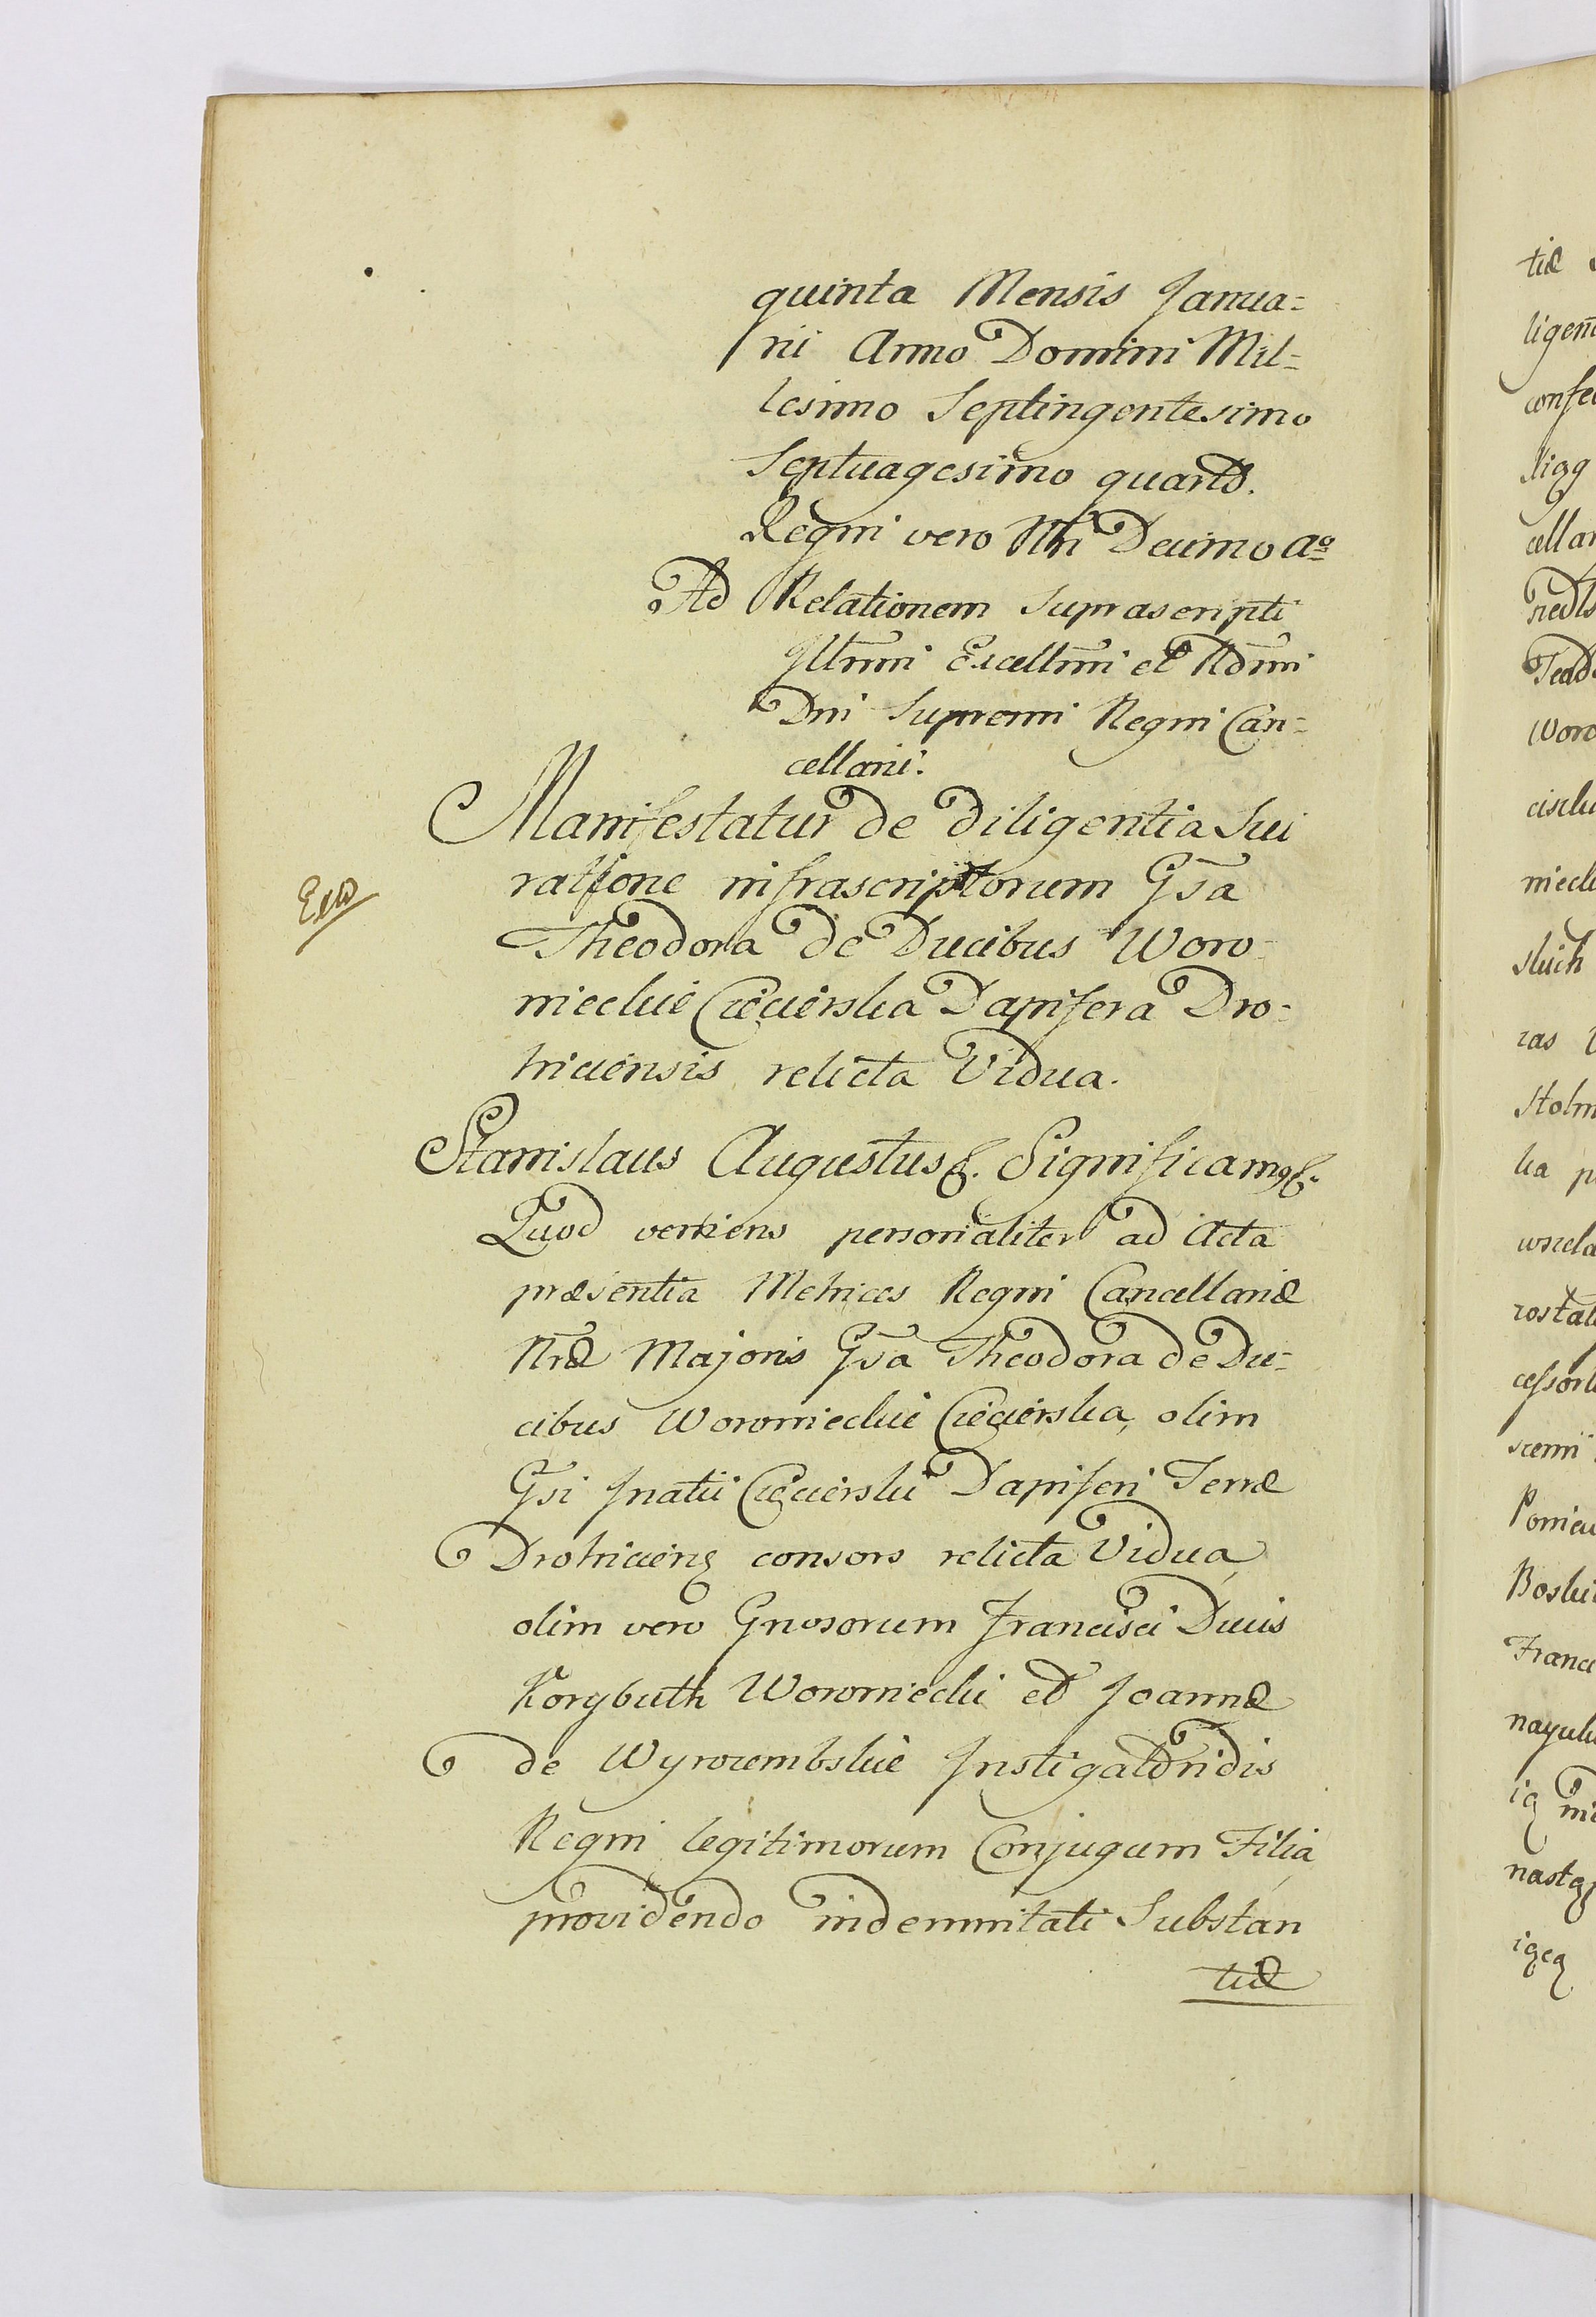 quinta Mensis Janua=
rii Anno Domini Mil=
lesimo Septingentesimo
Septuagesimo quarto.
Regni vero Nri Decimo Aº
Ad Relationem Suprascripti
Illmi Excellmi et Rdmi
Dni Supremi Regni Can=
cellarii.
Manifestatur de diligentia Sui
ratione infrascriptorum Gsa
Theodora de Ducibus Woro=
nieckie Ciecierska Dapifera Dro=
hiciensis relicta Vidua.
Stanislaus Augustus &. Significamq &.
Quod veniens personaliter ad Acta
præsentia Metrices Regni Cancellariæ
Nræ Majoris Gsa Theodora de Du=
cibus Woronieckie Ciecierska, olim
Gsi Jnatii Ciecierski Dapiferi Terræ
Drohicien consors relicta Vidua,
olim vero Gnosorum Francisci Ducis
Korybuth Woroniecki et Joannæ
de Wyrozembskie Jnstigatoridis
Regni legitimorum Conjugum Filia,
providendo indemnitati Substan
tiæ
tiæ
ligen
confe
cellar
Woro
niecki
ras